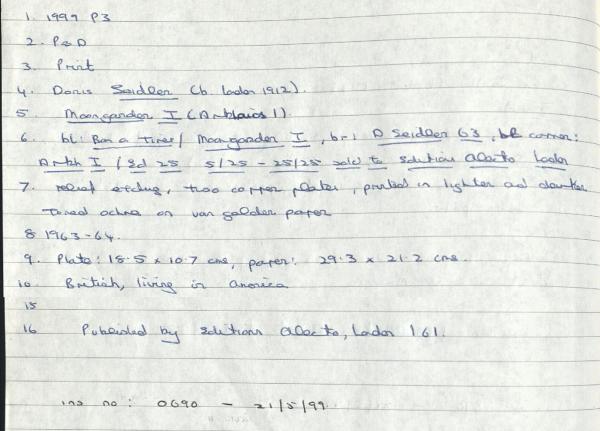 1. 1999 P3
2. P&D
3. Print
4. Doris Seidler (b. London 1912).
5. Moongarden I (Antblaics 1).
6. bl: Bon a Tirer / Moongarden I, br: D Seidler 63, bl corner:
Artbk I / Ed 25 5/25 - 25/25 sold to Editions Alecto London
7. relief etching, two copper plates, printed in lighter and darker
toned ochre on van gelder paper
8 1963-64.
9. Plate: 18.5 x 10.7 cms, paper: 29.3 x 21.2 cms.
10. British, living in America
15
16 Published by Editions Alecto, London 161.
ins no: 0690 - 21/5/99.